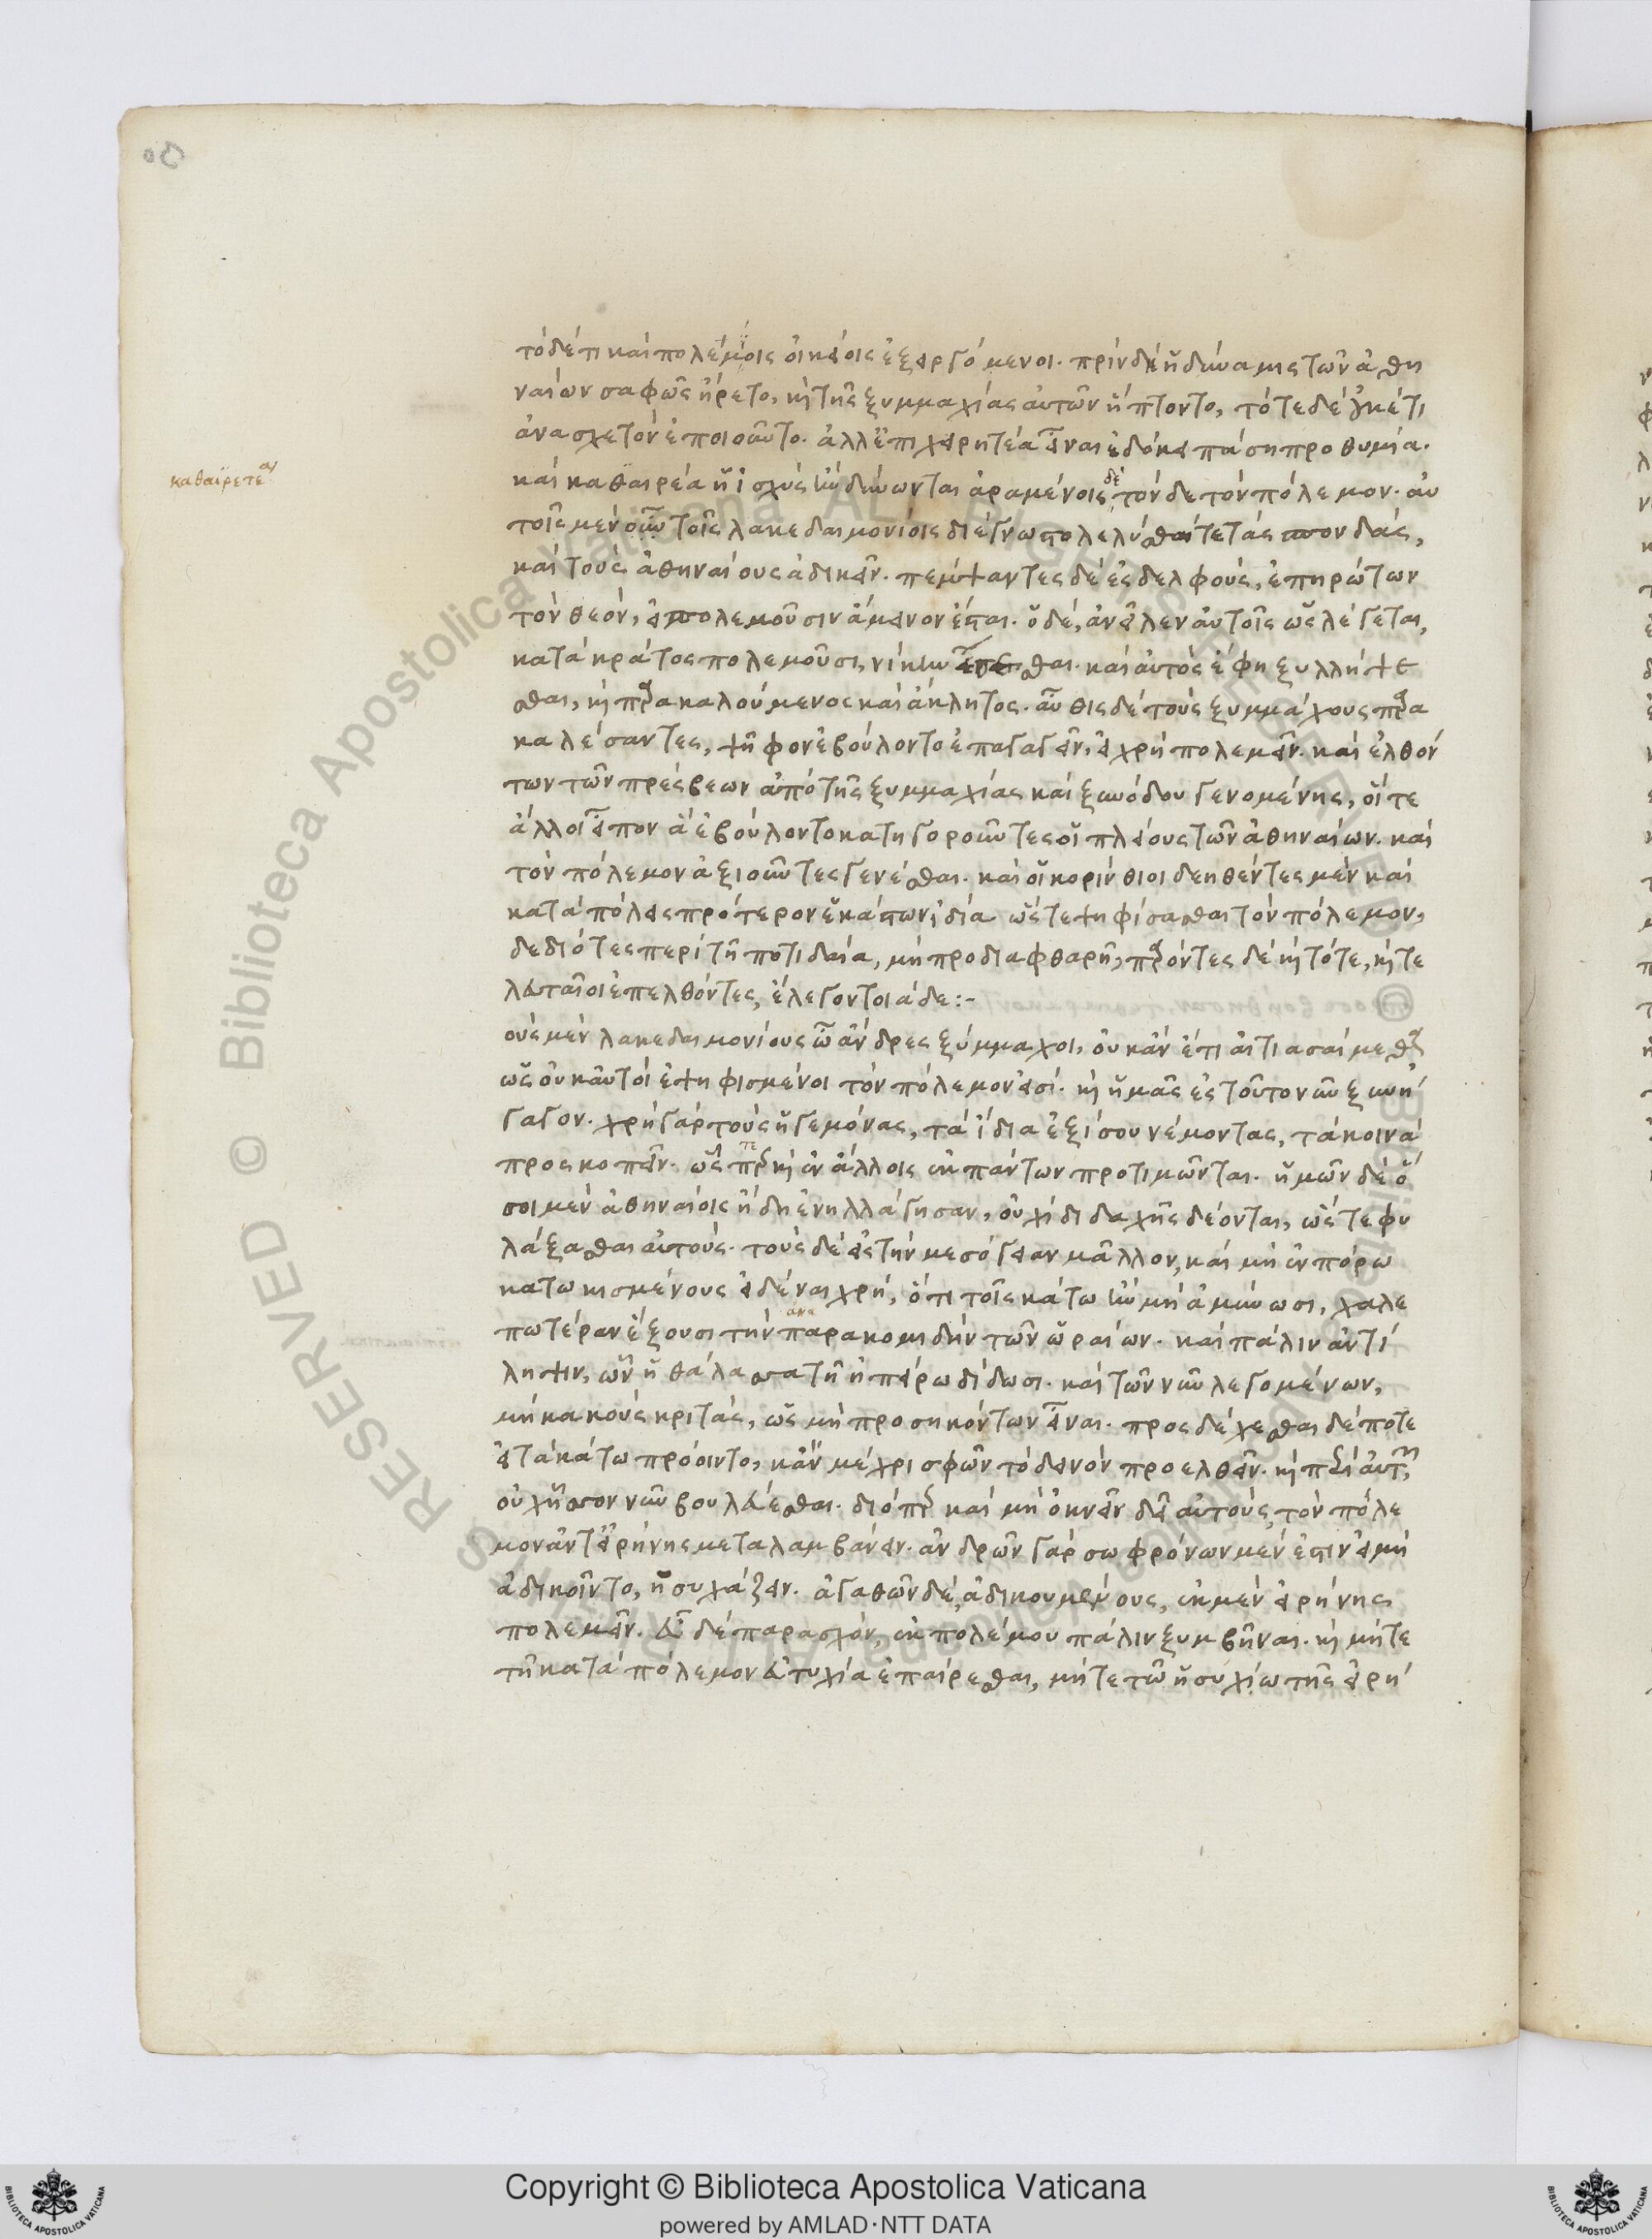 καθαιρετέα
τὸ δέ τι καὶ πολέμοις οἰκείοις ἐξειργόμενοι. πρὶν δὴ ἡ δύναμις τῶν ἀθη
ναίων σαφῶς ᾔρετο, καὶ τῆς ξυμμαχίας αὐτῶν ἥπτοντο, τότε δὲ οὐκέτι
ἀνασχετὸν ἐποιοῦντο. ἀλλ' ἐπιχειρητέα εἶναι ἐδόκει πάσῃ προθυμίᾳ.
καὶ καθαιρέα ἡ ἰσχὺς ἢν δύνωνται ἀραμένοις δὲ τόνδε τὸν πόλεμον. αὐ
τοῖς μὲν οὖν τοῖς λακεδαιμονίοις διέγνωστο λελύσθαι τε τὰς σπονδάς,
καὶ τοὺς ἀθηναίους ἀδικεῖν. πέμψαντες δὲ ἐς δελφοὺς, ἐπηρώτων
τὸν θεὸν, εἰ πολεμοῦσιν ἄμεινον ἔσται. ὁ δὲ, ἀνεῖλεν αὐτοῖς ὡς λέγεται,
κατὰ κράτος πολεμοῦσι, νίκην ἔσεσθαι. καὶ αὐτὸς ἔφη ξυλλήψε
σθαι, καὶ παρακαλούμενος καὶ ἄκλητος. αὖθις δὲ τοὺς ξυμμάχους παρα
καλέσαντες, ψῆφον ἐβούλοντο ἐπαγαγεῖν, εἰ χρὴ πολεμεῖν. καὶ ἐλθόν
των τῶν πρέσβεων ἀπὸ τῆς ξυμμαχίας καὶ ξυνόδου γενομένης, οἵ τε
ἄλλοι εἶπον ἃ ἐβούλοντο κατηγοροῦντες οἱ πλείους τῶν ἀθηναίων. καὶ
τὸν πόλεμον ἀξιοῦντες γενέσθαι. καὶ οἱ κορίνθιοι δεηθέντες μὲν καὶ
κατὰ πόλεις πρότερον ἑκάστων ἰδίᾳ ὥστε ψηφίσασθαι τὸν πόλεμον,
δεδιότες περὶ τῇ ποτιδαίᾳ, μὴ προδιαφθαρῇ, παρόντες δὲ καὶ τότε, καὶ τε
λευταῖοι ἐπελθόντες, ἔλεγον τοιάδε:-
ους μὲν λακεδαιμονίους ὦ ἄνδρες ξύμμαχοι, οὐκ ἂν ἔτι αἰτιασαίμεθα
ὡς οὐ καὐτοὶ ἐψηφισμένοι τὸν πόλεμον εἰσί. καὶ ἡμᾶς ἐς τοῦτο νῦν ξυνή
γαγον. χρὴ γὰρ τοὺς ἡγεμόνας, τὰ ἴδια ἐξ ἴσου νέμοντας, τὰ κοινὰ
προσκοπεῖν. ὥσπερ καὶ ἐν ἄλλοις ἐκ πάντων προτιμῶνται. ἡμῶν δὲ ὅ
σοι μὲν ἀθηναίοις ἤδη ἐνηλλάγησαν, οὐχὶ διδαχῆς δέονται, ὥστε φυ
λάξασθαι αὐτούς. τοὺς δὲ ἐς τὴν μεσόγειαν μᾶλλον, καὶ μὴ ἐν πόρῳ
κατῳκισμένους εἰδέναι χρή, ὅτι τοῖς κάτω ἢν μὴ ἀμύνωσι, χαλε
ανα
πωτέραν ἕξουσι τὴν παρακομιδὴν τῶν ὡραίων. καὶ πάλιν ἀντί
ληψιν, ὧν ἡ θάλασσα τῇ ἠπείρῳ δίδωσι. καὶ τῶν νῦν λεγομένων,
μὴ κακοὺς κριτὰς, ὡς μὴ προσηκόντων εἶναι. προσδέχεσθαι δέ ποτε
εἰ τὰ κάτω πρόοιντο, κἂν μέχρι σφῶν τὸ δεινὸν προελθεῖν. καὶ περὶ αὑτῶν
οὐχ ἧσσον νῦν βουλεύεσθαι. διόπερ καὶ μὴ ὀκνεῖν δεῖ αὐτοὺς, τὸν πόλε
μον ἀντ' εἰρήνης μεταλαμβάνειν. ἀνδρῶν γὰρ σωφρόνων μέν ἐστιν εἰ μὴ
ἀδικοῖντο, ἡσυχάζειν. ἀγαθῶν δὲ, ἀδικουμένους, ἐκ μὲν εἰρήνης
πολεμεῖν. εὖ δὲ παρασχὸν, ἐκ πολέμου πάλιν ξυμβῆναι. καὶ μήτε
τῇ κατὰ πόλεμον εὐτυχίᾳ ἐπαίρεσθαι, μήτε τῷ ἡσυχίῳ τῆς εἰρή
Copyright © Biblioteca Apostolica Vaticana
powered by AMLAD·NTT DATA